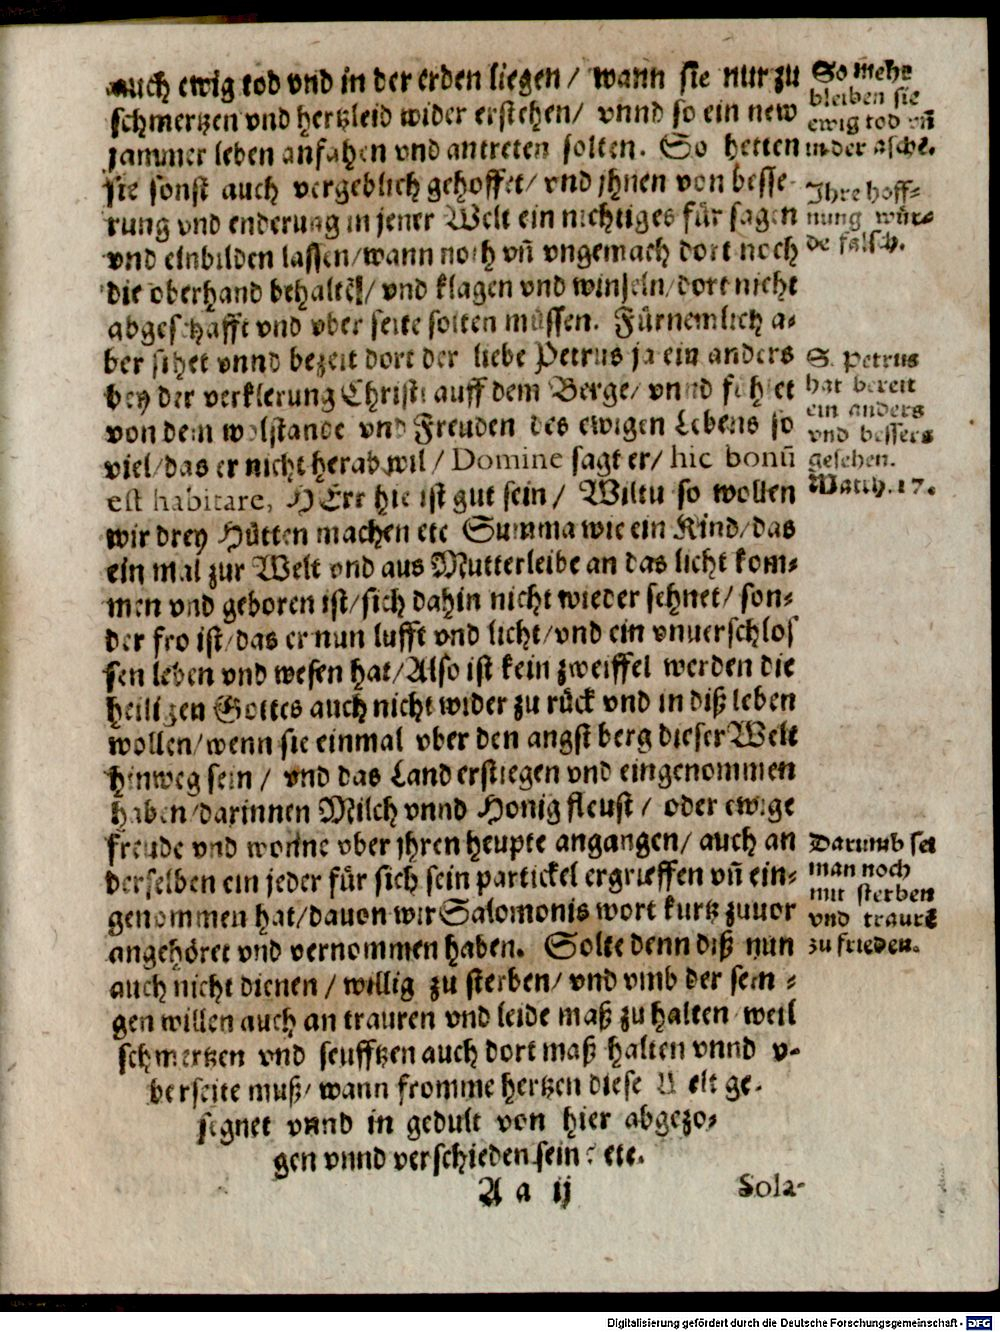 auch ewig tod vnd in der erden liegen / wann sie nur zu
schmertzen vnd hertzleid wider erstehen / vnnd so ein new
jammer leben anfahen vnd antreten solten. So hetten
sie sonst auch vergeblich gehoffet / vnd jhnen von besse-
rung vnd enderung in jener Welt ein nichtiges für sagen
vnd einbilden lassen / wann noch vñ vngemach dort noch
die oberhand behaltẽ / vnd klagen vnd winseln / dort nicht
abgeschafft vnd vber seite solten müssen. Fürnemlich a-
ber sihet vnnd bezeit dort der liebe Petrus ja ein anders
bey der verklerung Christi auff dem Berge / vnnd sihet
von dem wolstande vnd Freuden des ewigen Lebens so
viel / das er nicht herab wil / Domine sagt er / hic bonũ
est habitare, HErr hie ist gut sein / Wiltu so wollen
wir drey Hütten machen etc Summa wie ein Kind / das
ein mal zur Welt vnd aus Mutterleibe an das licht kom-
men vnd geboren ist / sich dahin nicht wieder sehnet / son-
der fro ist / das er nun lufft vnd licht / vnd ein vnuerschlos
sen leben vnd wesen hat / Also ist kein zweiffel werden die
heiligen Gottes auch nicht wider zu rück vnd in diß leben
wollen / wenn sie einmal vber den angst berg dieser Welt
hinweg sein / vnd das Land erstiegen vnd eingenommen
haben / darinnen Milch vnnd Honig fleust / oder ewige
freude vnd wonne vber jhren heupte angangen / auch an
derselben ein jeder für sich sein partickel ergrieffen vñ ein-
genommen hat / dauon wir Salomonis wort kurtz zuuor
angehöret vnd vernommen haben. Solte denn diß nun
auch nicht dienen / willig zu sterben / vnd vmb der sein-
gen willen auch an trauren vnd leide maß zu halten weil
schmertzen vnd seufftzen auch dort maß halten vnnd v-
berseite muß / wann fromme hertzen diese Welt ge-
segnet vnnd in gedult von hier abgezo-
gen vnnd verschieden sein? etc.
A a ij
Sola-
So mehr
bleiben sie
ewig tod vñ
in der asche.
Ihre hoff-
nung wür-
de falsch.
S. Petrus
hat bereit
ein anders
vnd bessers
gesehen.
Matth. 17.
Darumb sei
man noch
mit sterben
vnd traurẽ
zu frieden.
Digitalisierung gefördert durch die Deutsche Forschungsgemeinschaft - DFG